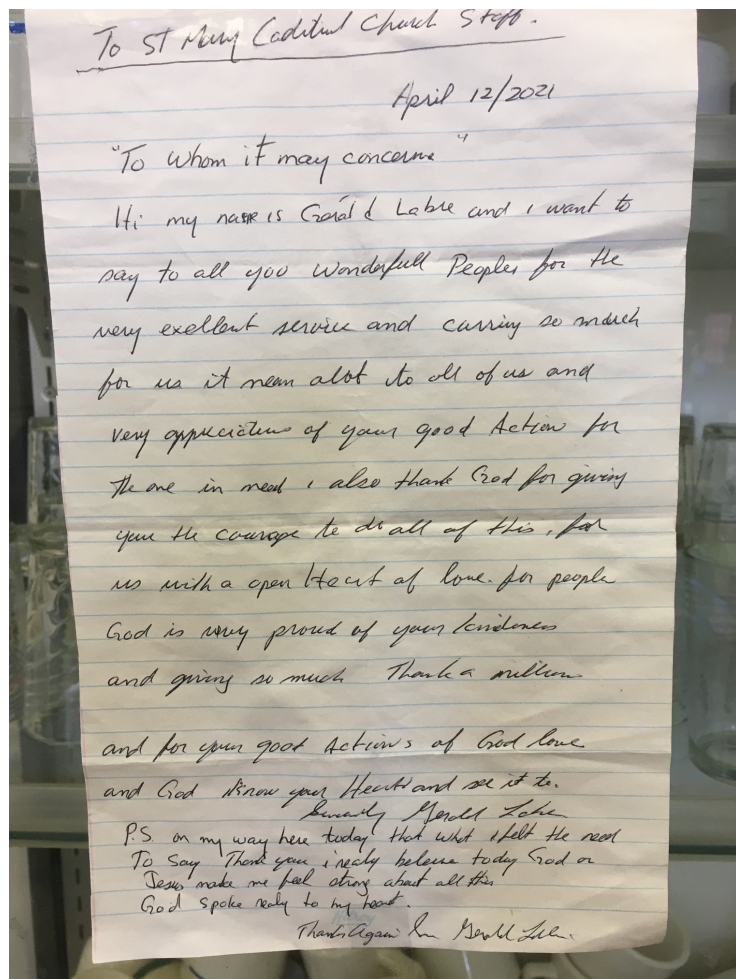 To St Mary Caditral Church Staff.
April 12/2021
"To whom it may concerne"
Hi my name is Gérald Labre and i want to
say to all you wonderfull Peoples for the
very exellent service and carring so much
for us it mean alot to all of us and
very appreciative of your good Action for
the one in need i also thank God for giving
you the courage to do all of this, for
us with a open Heart of love. for people
God is very proud of your kindness
and giving so much Thank a million
and for your good Actions of God love
and God know your Heart and see it to.
Sincerely Gerald Labre
P.S. on my way here today that what i felt the need
To say Thank you i realy beleive today God or
Jesus make me feel strong about all this
God spoke realy to my heart.
Thanks Again Gerald Labre